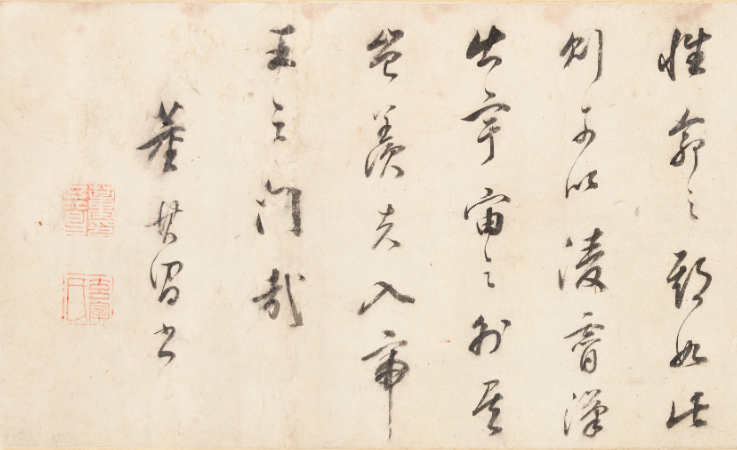 性命之期如此
則可以凌霄漢
出宇宙之外矣
豈羨夫入帝
王之門哉
董其昌書